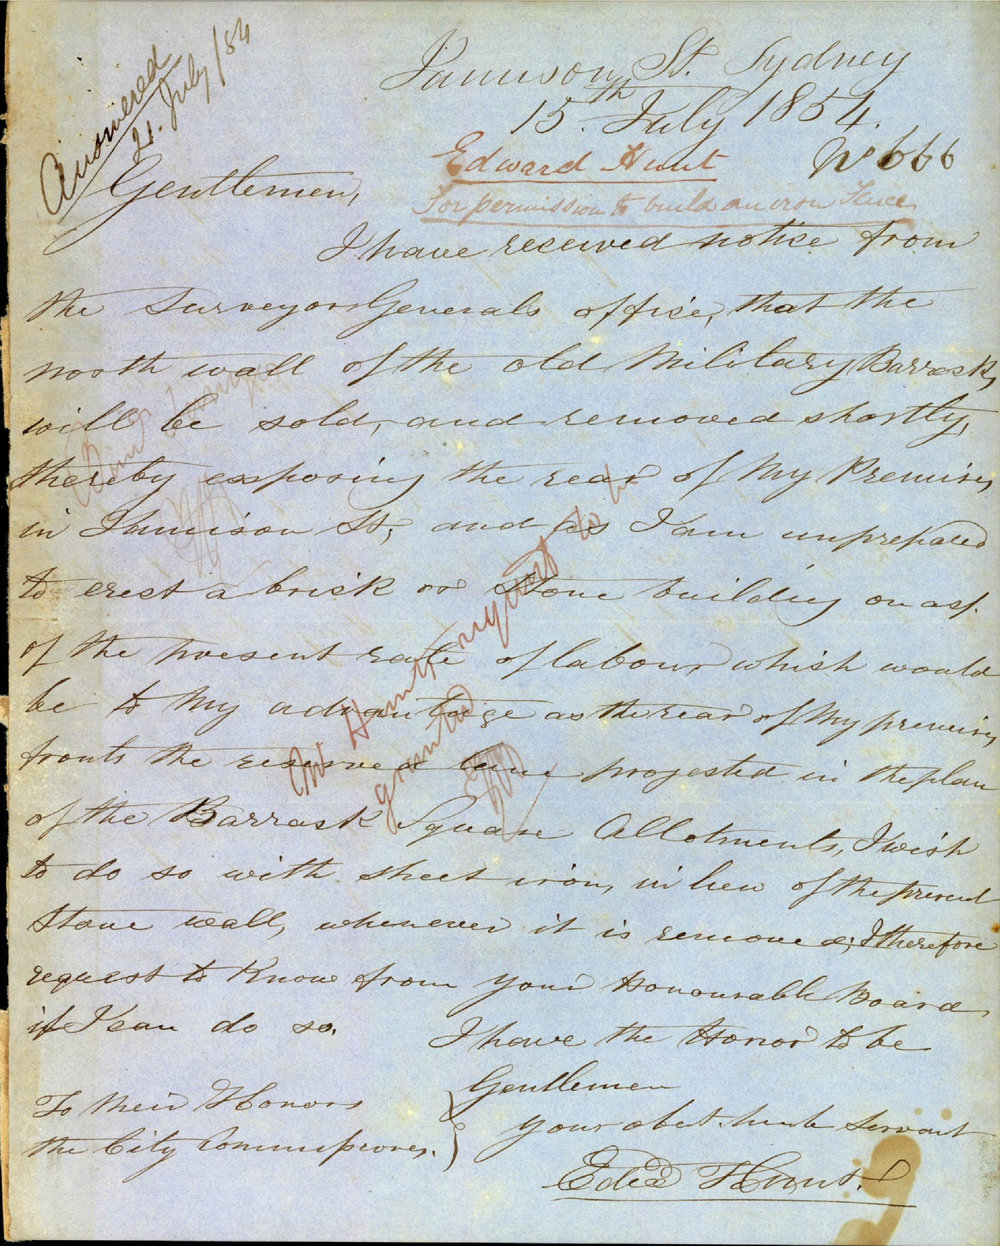 Answered
21. July/54
Jamison St. Sydney
15th. July 1854.
No 666
Edward Hunt
For permission to build an iron Fence
Gentlemen,
I have received notice from
the Surveyor Generals office, that the
north wall of the old Military Barrack,
will be sold, and removed shortly,
thereby exposing the rear of My Premises,
in Jamison St, and as I am unprepared
to erect a brick or Stone building on
of the present rate of labour, which would
be to My advantage as the rear of My premises,
fronts the reserved lane projected in the plan
of the Barrack Square Allotments, I wish
to do so with sheet iron, in lieu of the present
Stone wall, whenever it is removed; I therefore
request to Know from your Honourable Board,
if I can do so.
I have the Honor to be
Gentlemen
your obet. humb servant
Edwd Hunt.
To their Honors
the City Commissioners.
Mr Hunts request to be
granted